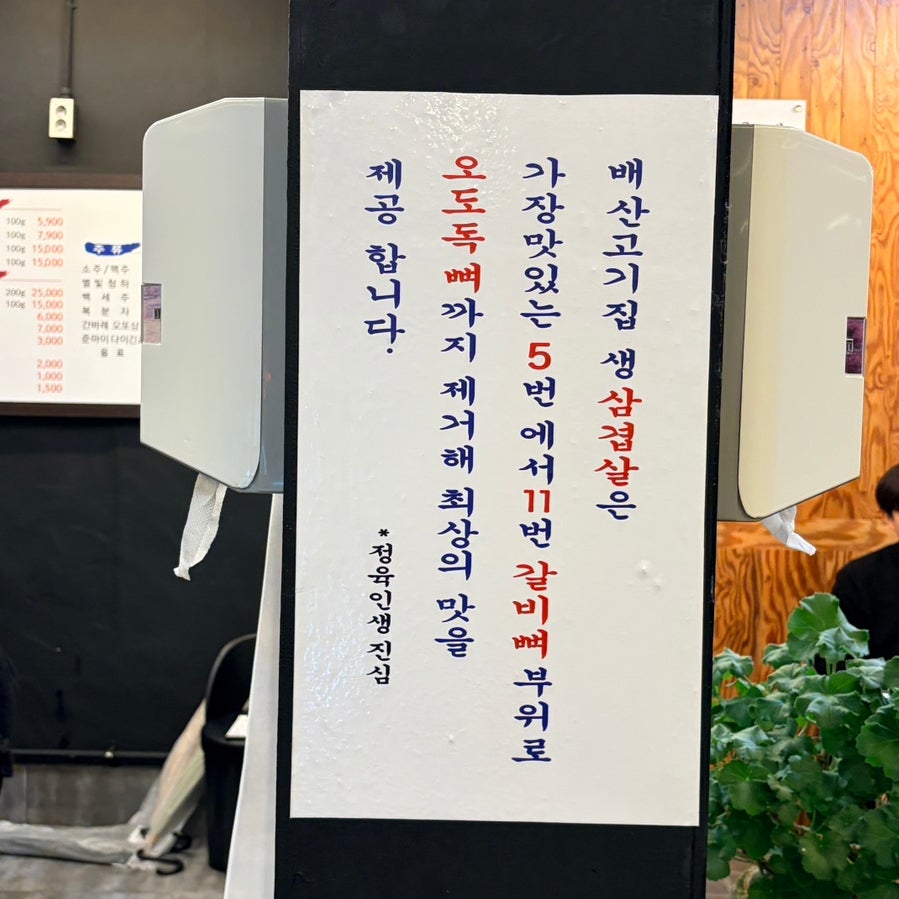 배산고기집 생삼겹살은
가장맛있는 5번 에서 11번 갈비뼈부위로
오도독뼈까지 제거해 최상의 맛을
제공 합니다.
*정육인생 진심
100g 5,900
100g 7,900
100g 15,000
100g 15,000
200g 25,000
100g 15,000
6,000
7,000
3,000
2,000
1,000
1,500
주 류
소주/맥주
별빛청하
백 세 주
복 분 자
간바레 오또상
준마이 다이긴
음 료